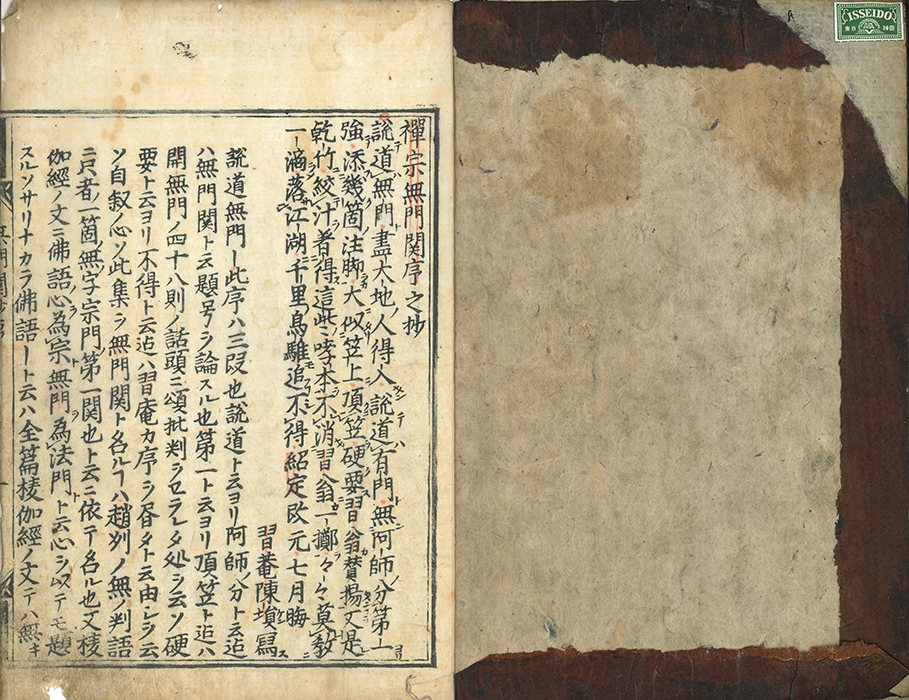 ISSEIDO
東京 神田
禪宗無門関序之抄
說道無門盡大地人得入說道有門無阿師分第一
強添幾箇注脚大似笠上頂笠硬要習翁賛揚又是
乾竹絞汁著得這些哮本不消習翁一擲々々莫教
一滴落江湖千里烏騅追不得紹定改元七月晦
習菴陳塤寫
說道無門ー此序ハ三段也說道ト云ヨリ阿師ノ分ト云迠
ハ無門関ト云題号ヲ論スル也第一ト云ヨリ頂笠ト迠ハ
開無門ノ四十八則ノ話頭ニ頌批判ヲセラレタ処ヲ云ソ硬
要ト云ヨリ不得ト云迠ハ習庵カ序ヲタト云由シヲ云
ソ自叙ノ心ソ此集ヲ無門関ト名ルヿハ趙州ノ無ノ判語
ニ尺者ノ一箇無字宗門第一関也ト云ニ依テ名ル也又楞
伽經ノ文ニ佛語心為宗無門為法門ト云心シ以テモ題
スルソサリナカラ佛語ート云ハ全篇楞伽經ノ文テハ無